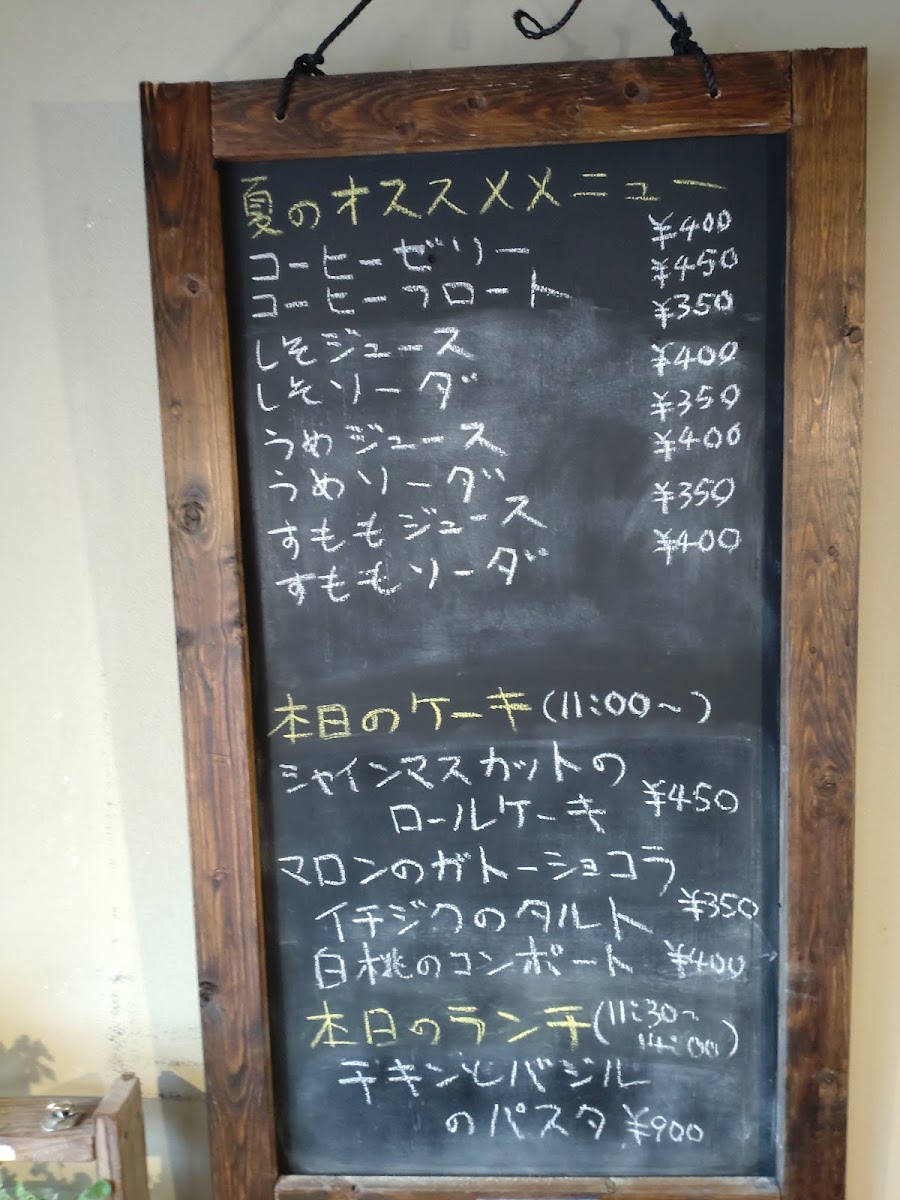 夏のオススメメニュー
コーヒーゼリー ¥400
コーヒーフロート ¥450
しそジュース ¥350
しそソーダ ¥400
うめジュース ¥350
うめソーダ ¥400
すももジュース ¥350
すももソーダ ¥400
本日のケーキ(11:00~)
シャインマスカットの
ロールケーキ ¥450
マロンのガトーショコラ
イチジクのタルト ¥350
白桃のコンポート ¥400
本日のランチ(11:30~
14:00)
チキンとバジル
のパスタ ¥900